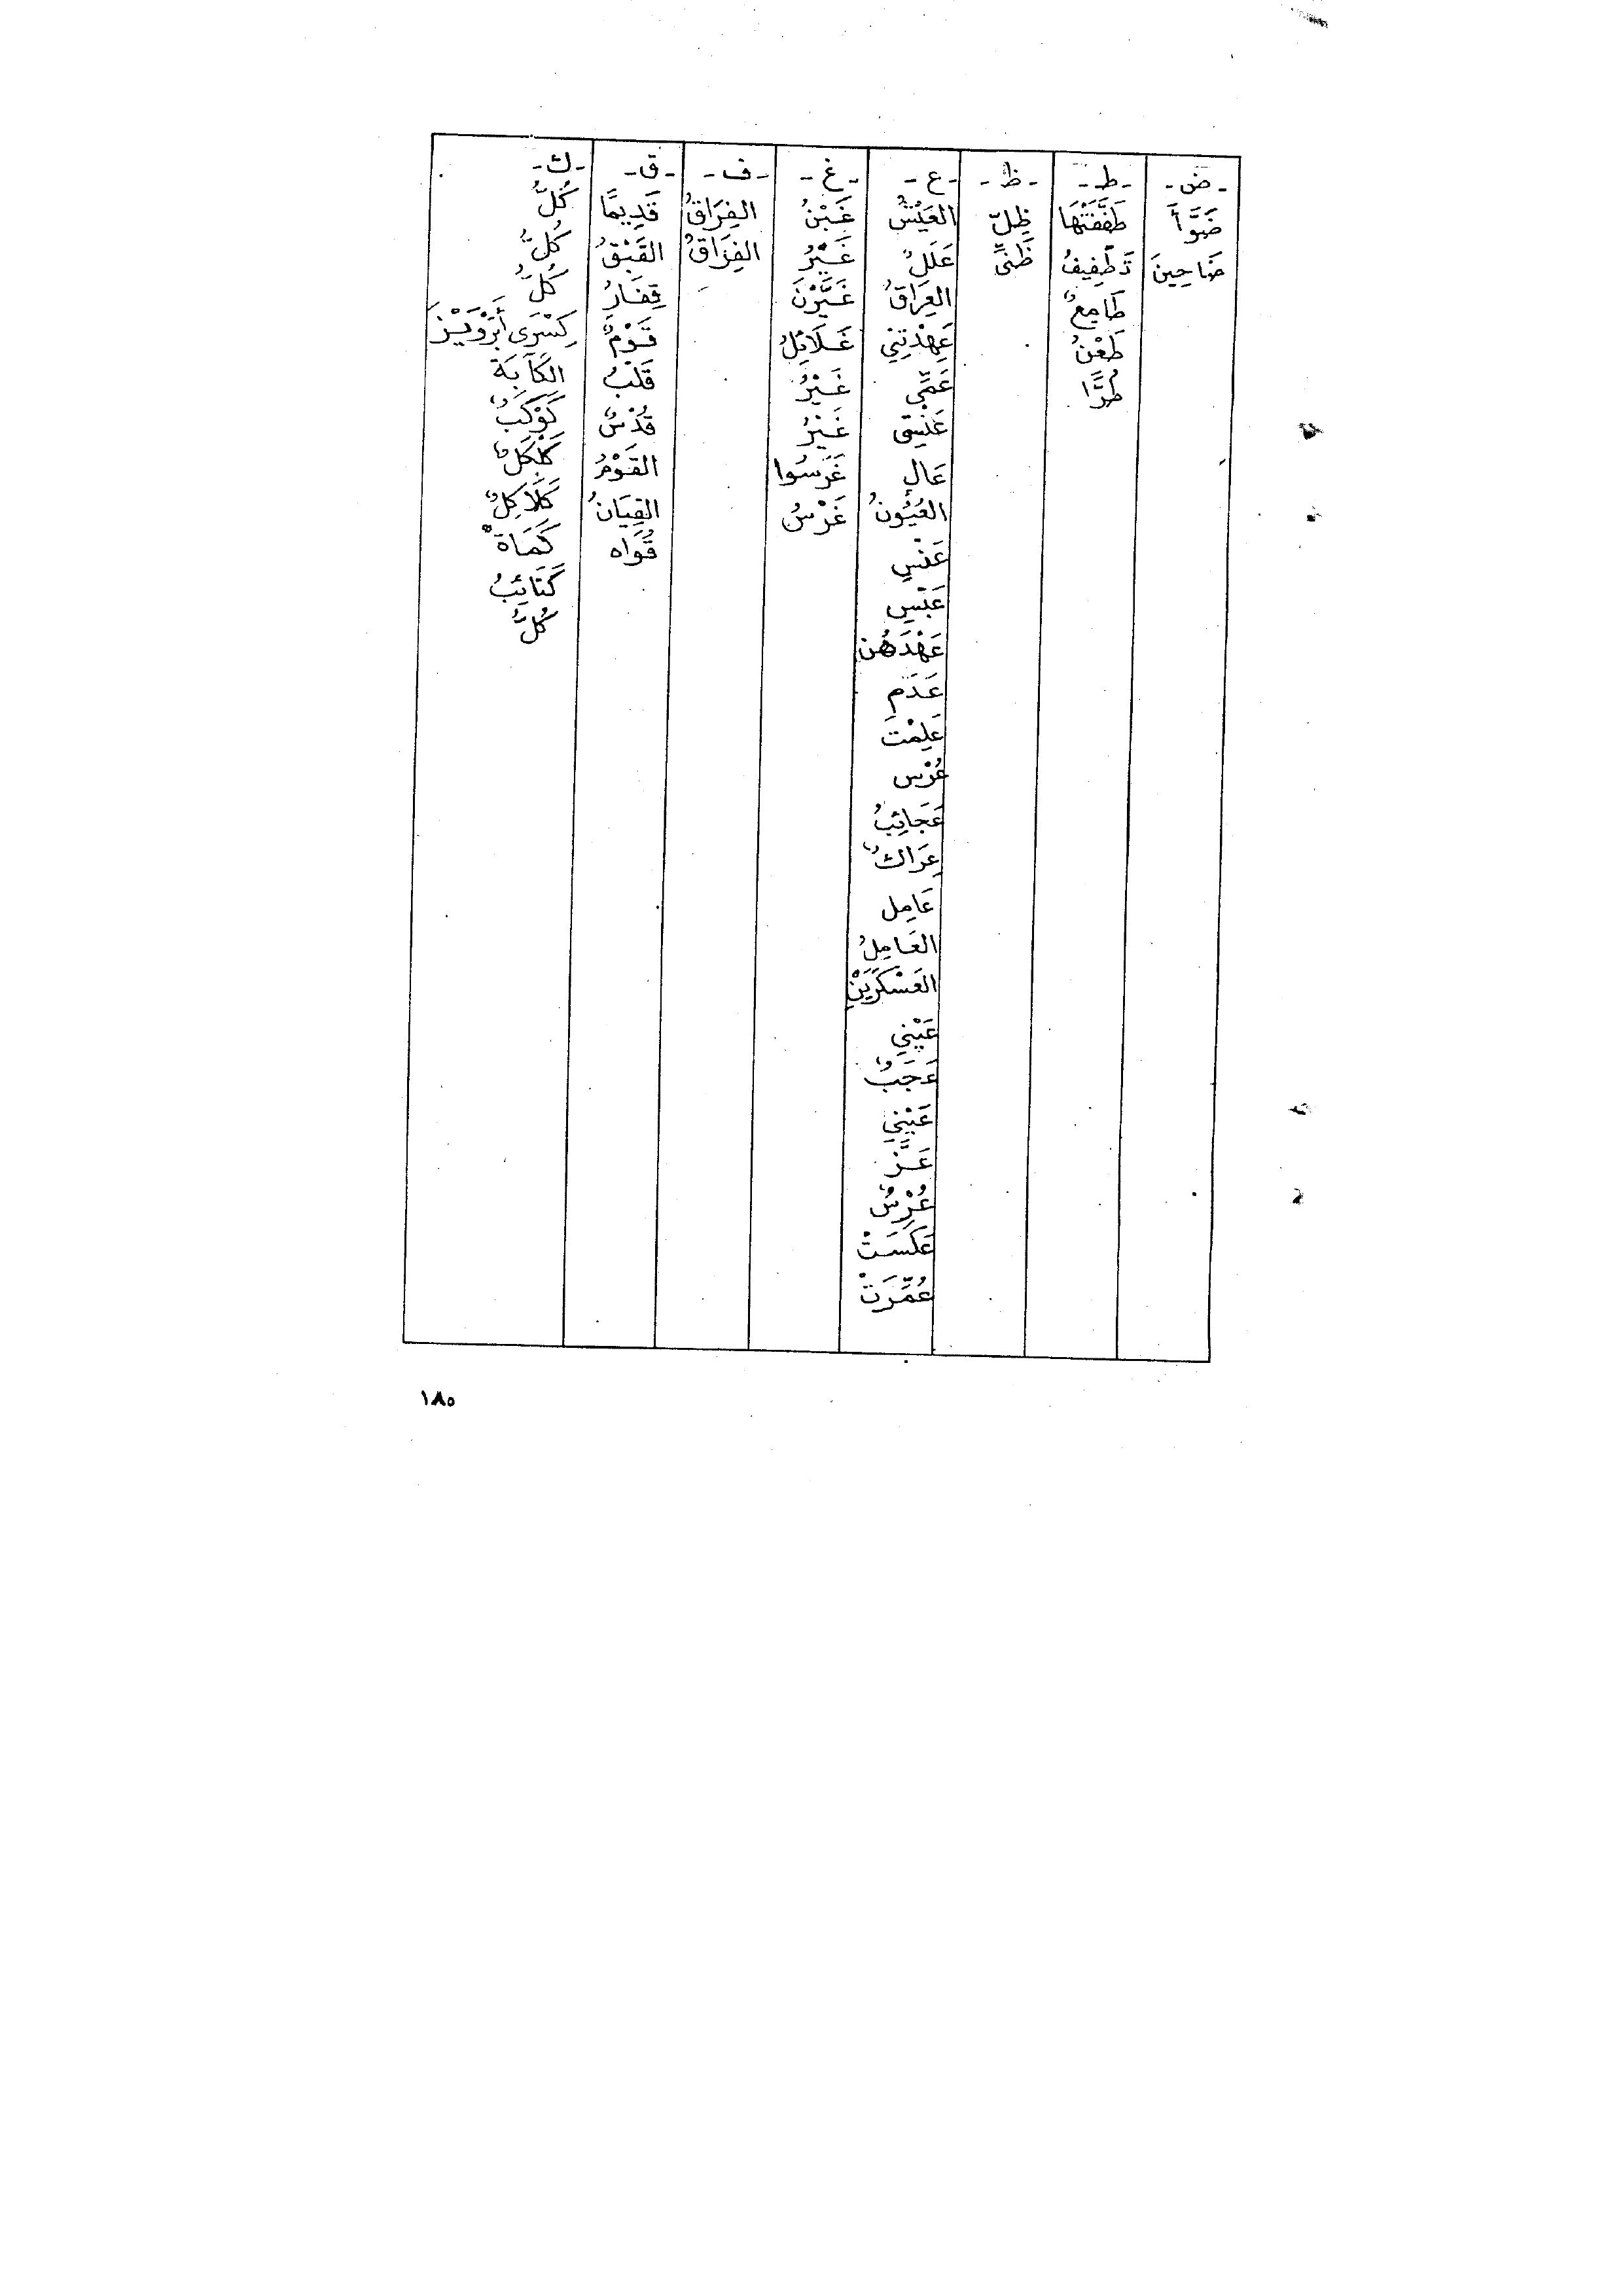 - ض - - ط - - ظ - - ع - - غ - - ف - - ق - - ك -
ضَوَّأَ طَفَّفَتْهَا ظِلّ العَيْشُ غَبْنُ الفِرَاقُ قَدِيمًا كُلُّ
ضَاحِينَ تَطْفِيفُ ظَنِّي عَلَلٌ غَيْرُ الفِرَاقُ القَبْقُ كُلُّ
طَامِعٌ العِرَاقُ غَيَّرْنَ قِفَارُ كُلُّ
طَعْنُ عَهِدْتِنِي غَلَائِلُ قَوْمٌ كِسْرَى أَبَرْوِيْزَ
طُرًّا عَمِّي غَيْرُ قَلْبُ الكَآبَة
غَيْرُ قُدْسٌ كَوْكَبٌ
عَالٍ غَرَسُوا القَوْمُ كَلْكَلٌ
العُيُونُ غَرْسُ القِيَانُ كَلَاكِلٌ
عَنْسِي قُوَاه كُمَاةٌ
عَبْسٍ كَتَائِبُ
عَهْدَهُن كُلُّ
عَدَم
عَلِمْتَ
عُرْس
عَجَائِبُ
عِرَاكٌ
عَامِل
العَامِلُ
العَسْكَرَيْنِ
عَيْنِي
عَجَبٌ
عَيْنِي
عَزَّ
عُرْسٌ
عَكَسَتْ
عُمِّرَتْ
١٨٥